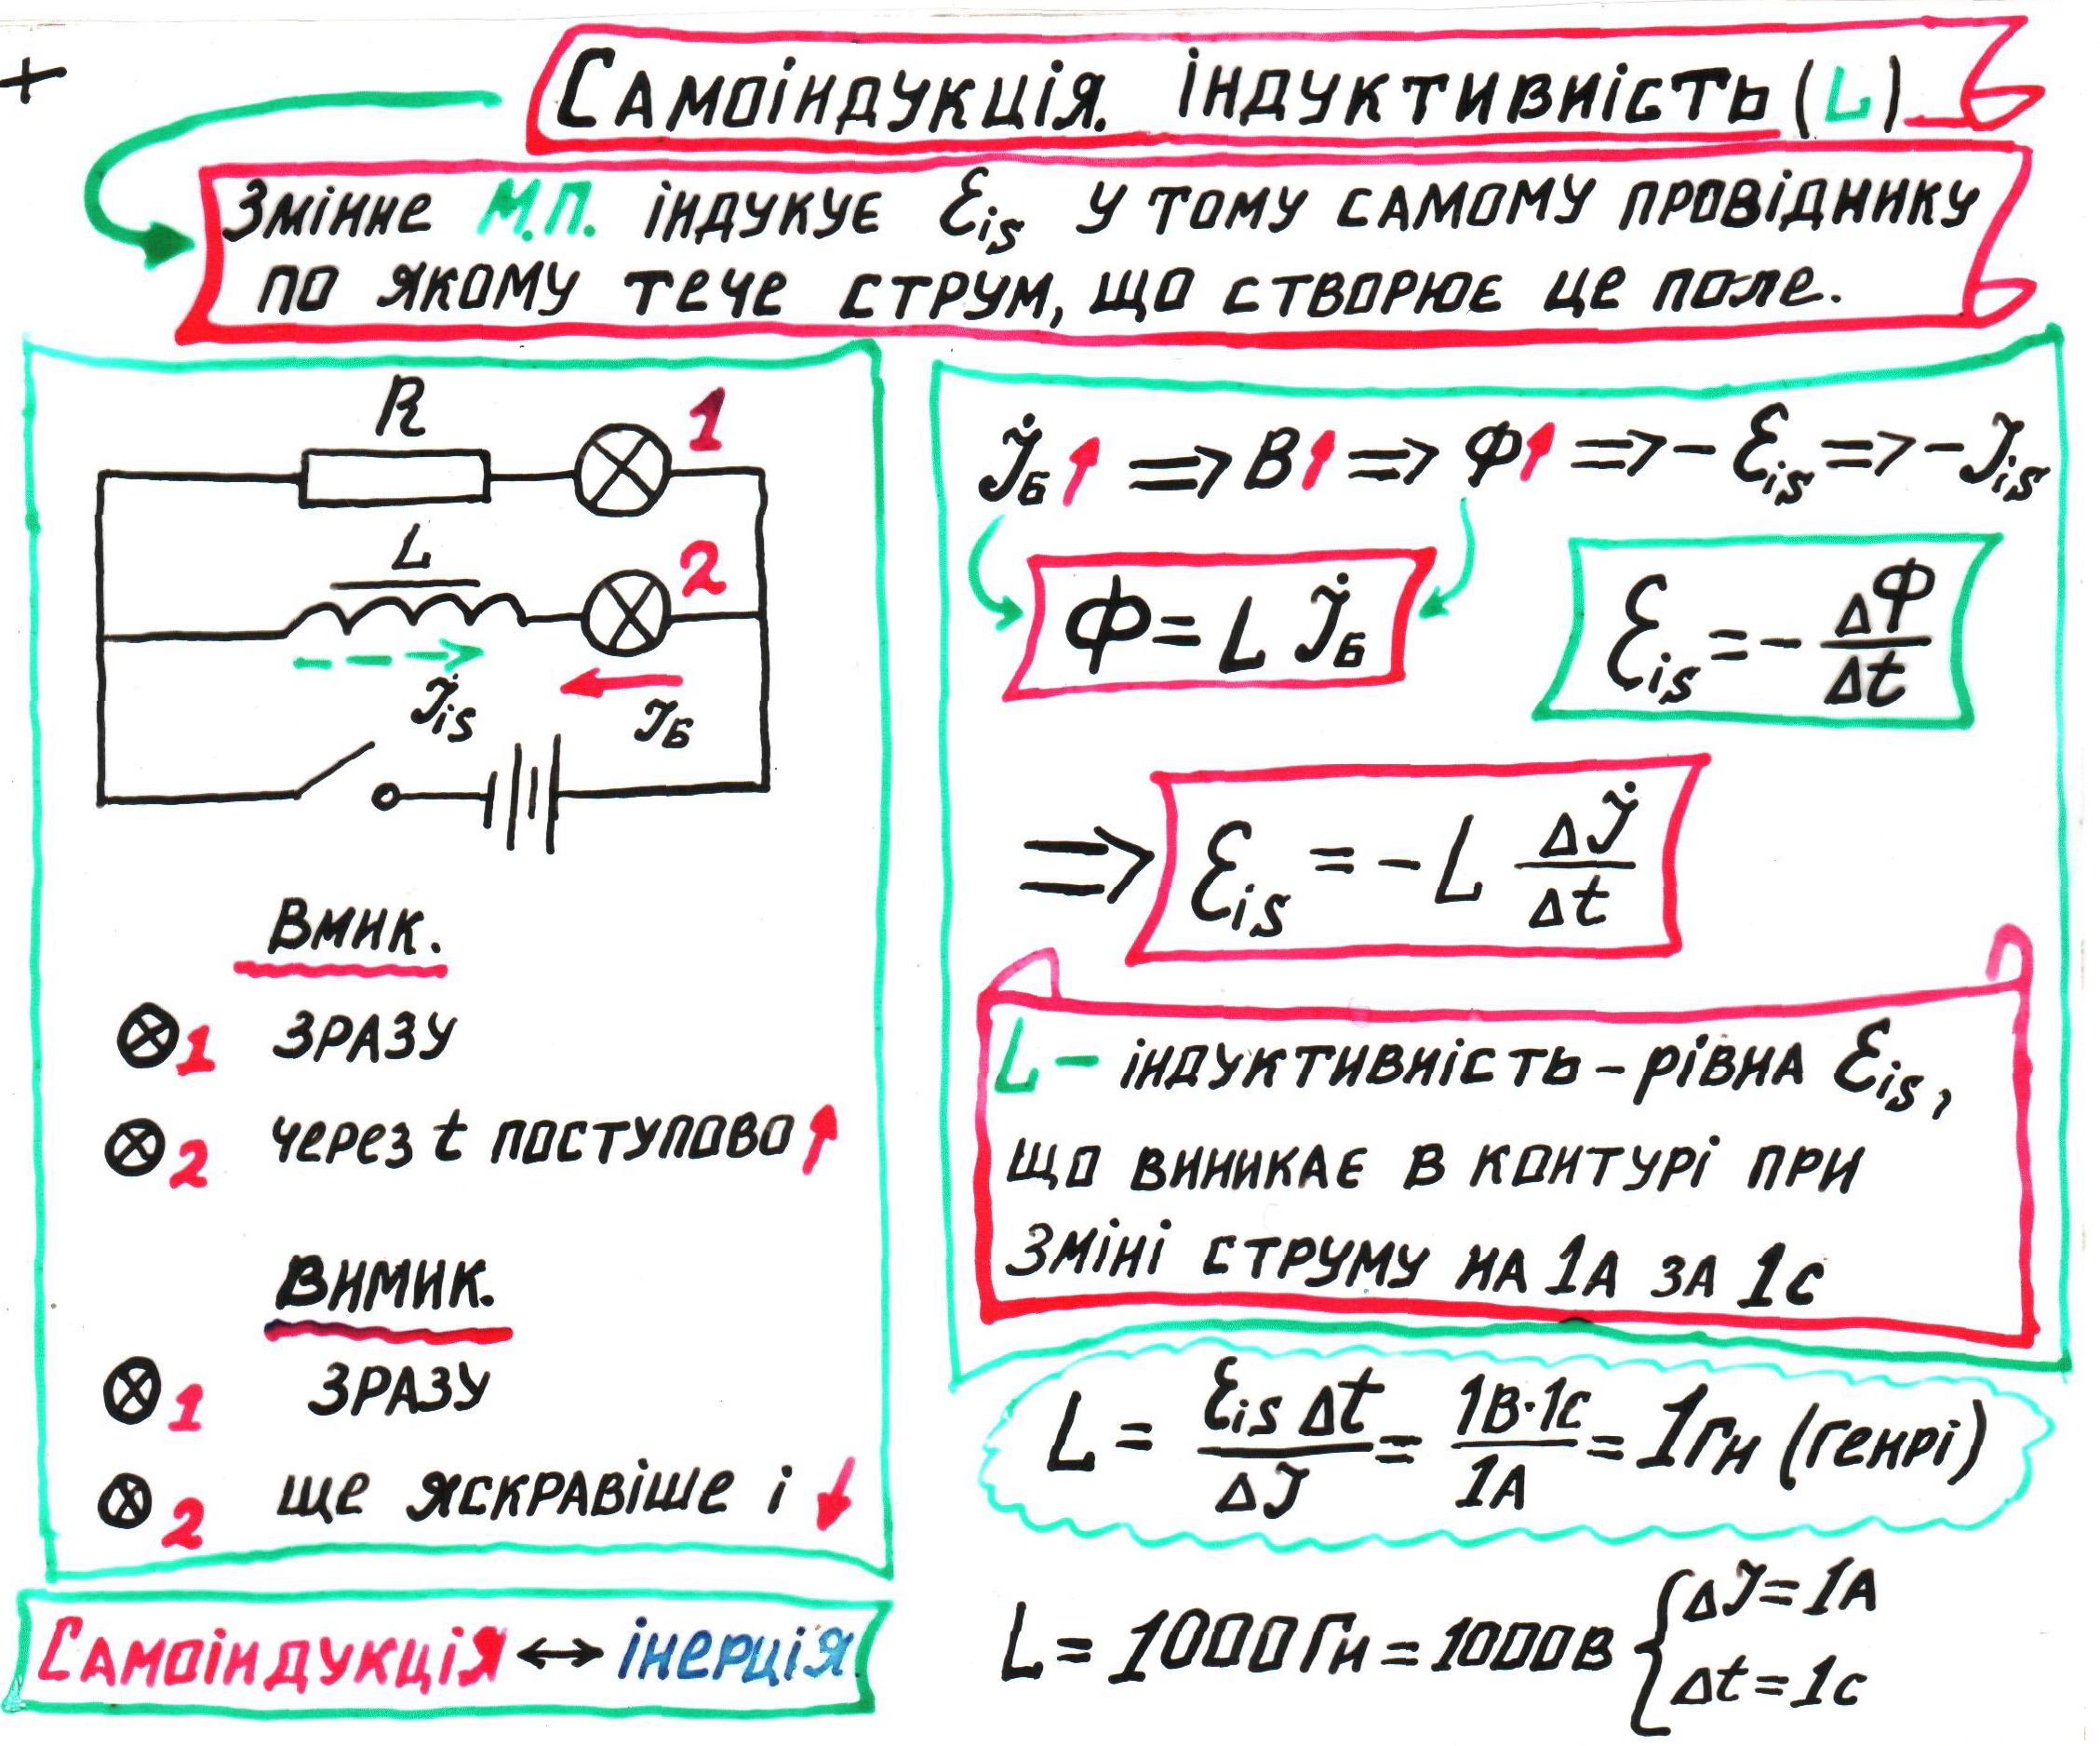 +
Самоіндукція. Індуктивність (L)
Змінне М.П. індукує Ɛis у тому самому провіднику
по якому тече струм, що створює це поле.
R
1
L
2
Jis
JБ
Вмик.
1 зразу
2 через t поступово ↑
Вимик.
1 зразу
2 ще яскравіше і ↓
Самоіндукція ↔ інерція
JБ ↑ => B ↑ => Ф ↑ => - Ɛis => - Jis
Ф = L JБ
Ɛis = - ΔФ/Δt
=> Ɛis = - L ΔJ/Δt
L – індуктивність – рівна Ɛis,
що виникає в контурі при
зміні струму на 1А за 1с
L = Ɛis Δt/ΔJ = 1В·1с/1А = 1Гн (генрі)
L = 1000Гн = 1000В { ΔJ = 1А
Δt = 1с